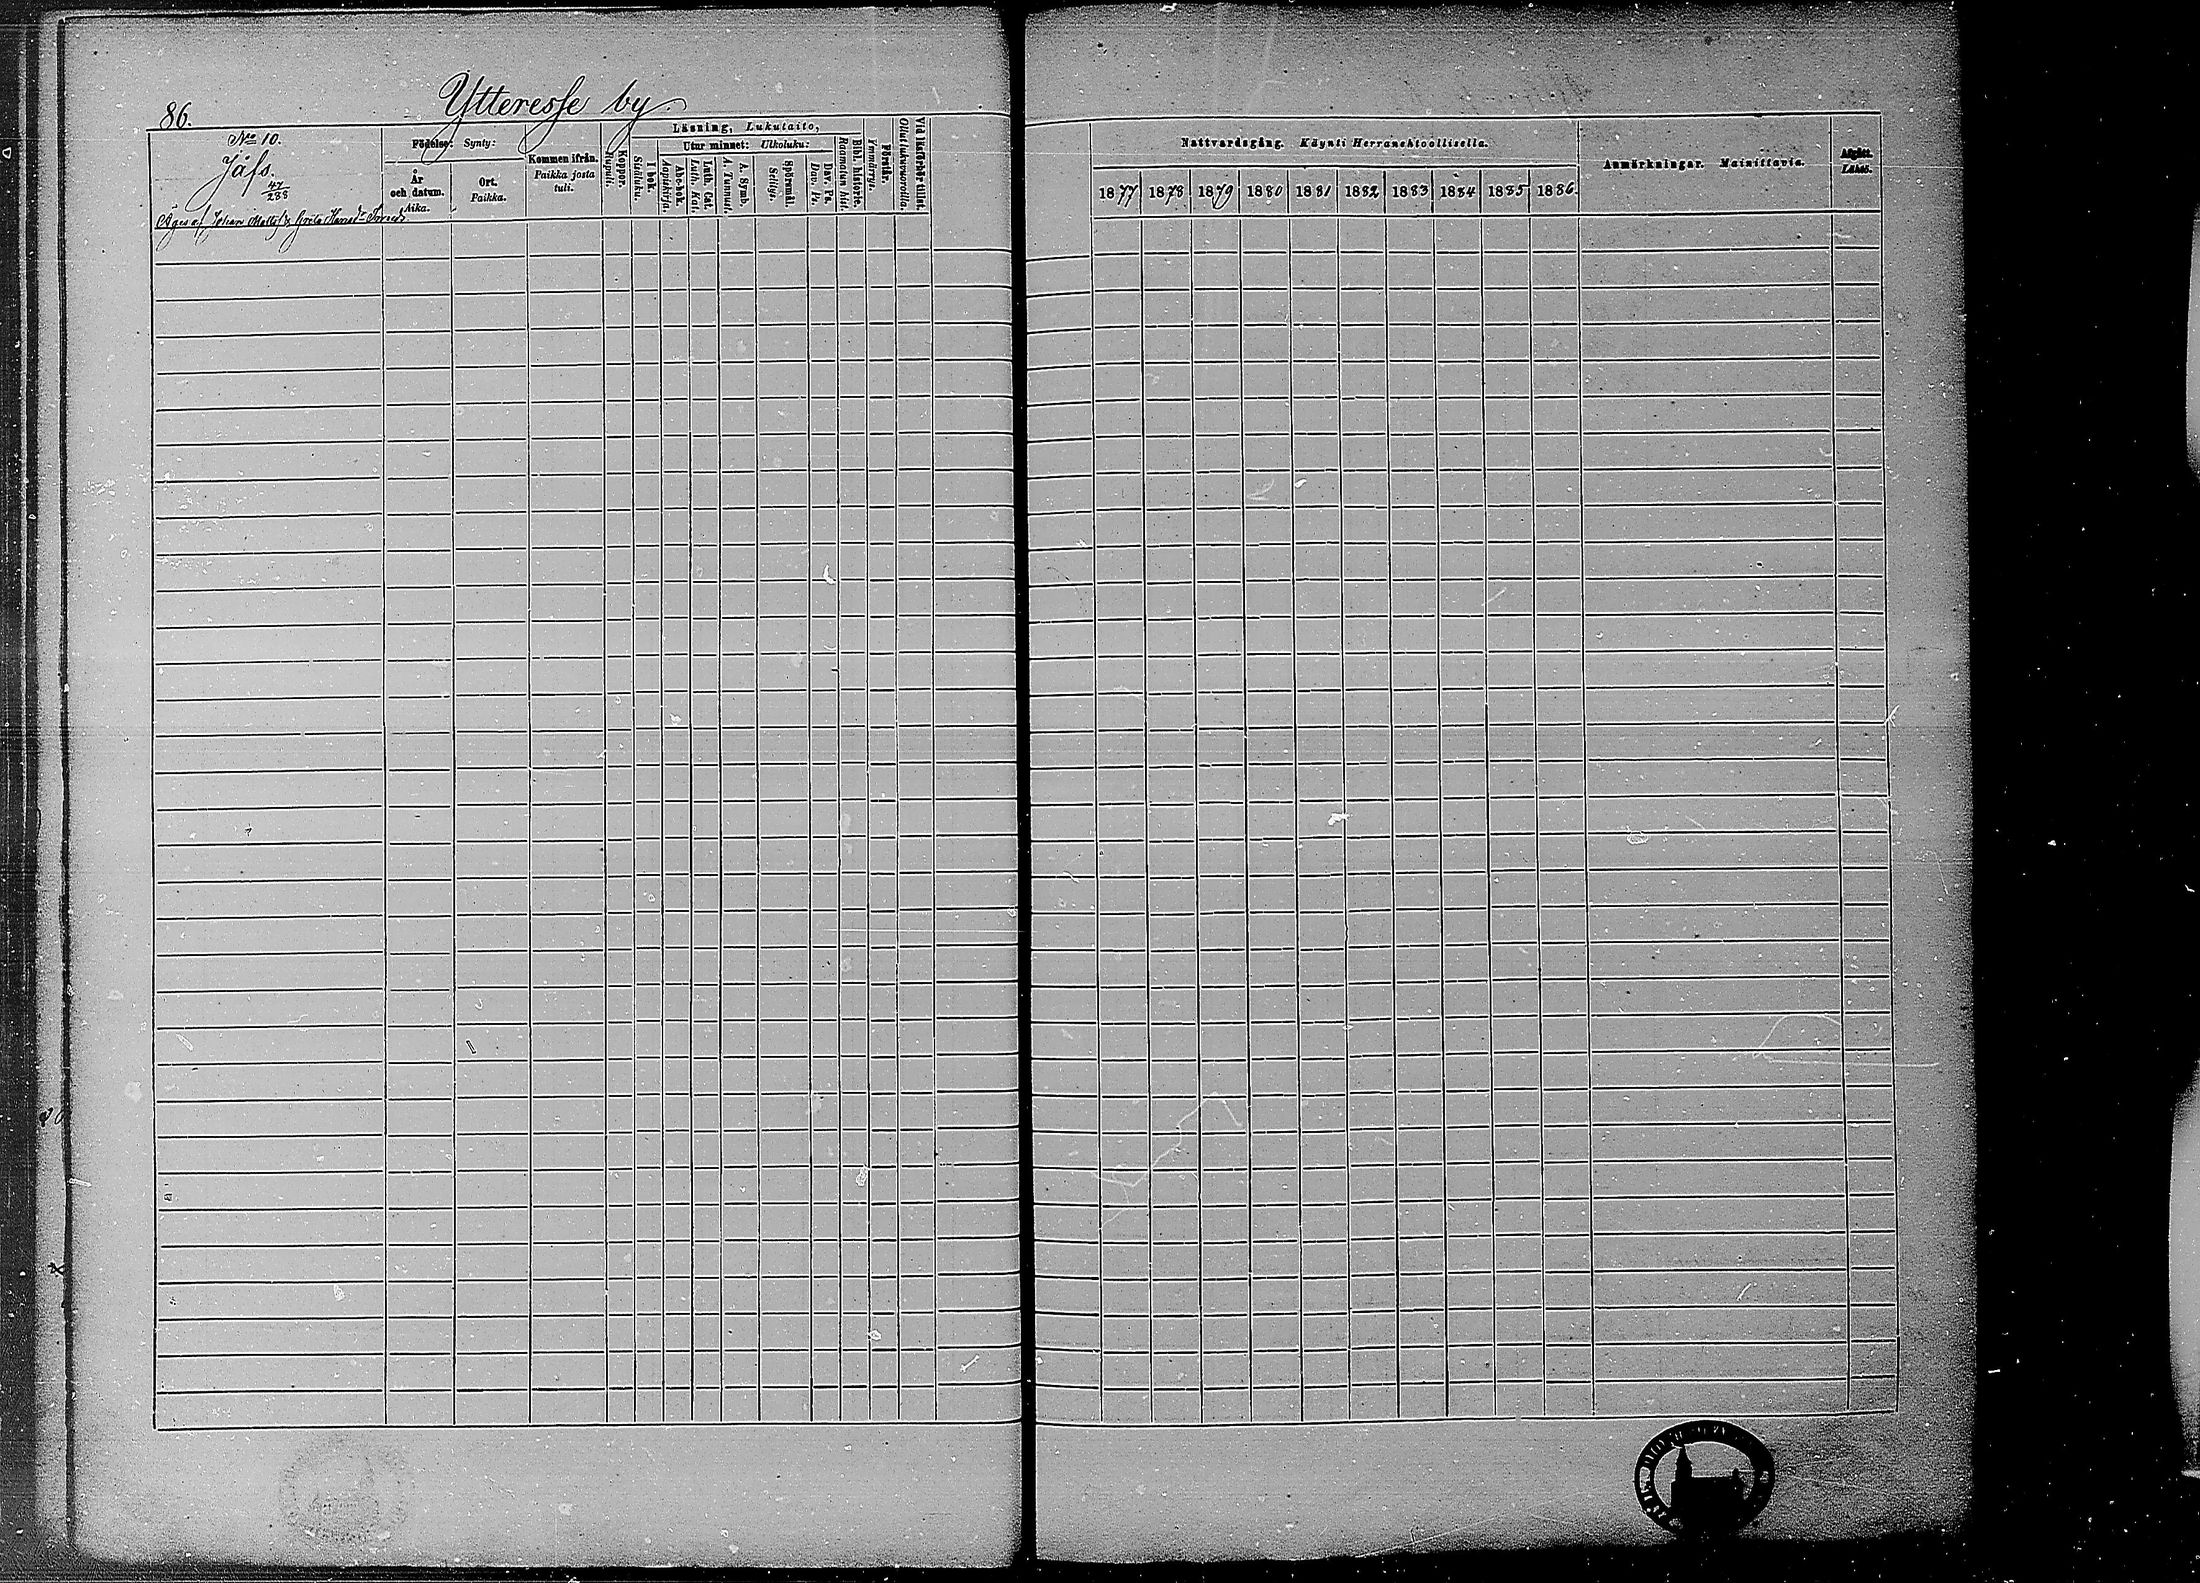 86.
Ytteresse by
No 10.
Jåfs.
47/288
Äges af Johan Matts
Födelse: Synty:
År och datum. Aika.
Ort. Paikka.
Kommen ifrån. Paikka josta tuli.
Koppor. Rupuli.
Läsning, Lukutaito,
I bok. Sisäluku.
Utur minnet: Ulkoluku:
Ab-bok. Aapiskirja.
Luth. Cat. Luth. Kat.
A. Symb. A. Tunnust.
Spörsmål. Selitys.
Dav. Ps. Dav. Ps.
Bibl. historie. Raamatun hist.
Förstår. Ymmärrys.
Vid läsförhör tillst. Ollut lukuvuorolla.
Nattvardsgång. Käynti Herranehtoollisella.
1877 1878 1879 1880 1881 1882 1883 1884 1885 1886
Anmärkningar. Mainittavia.
Afgått. Lähtö.